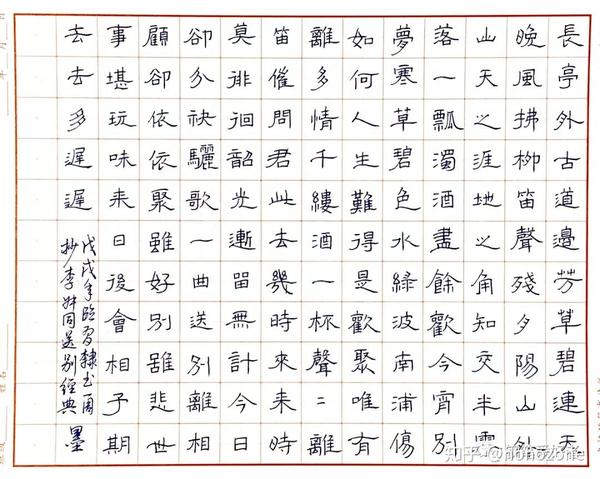 長亭外古道邊芳草碧連天
晚風拂柳笛聲殘夕陽山外
山天之涯地之角知交半零
落一瓢濁酒盡餘歡今宵別
夢寒草碧色水綠波南浦傷
如何人生難得是歡聚唯有
離多情千縷酒一杯聲二離
笛催問君此去幾時來来時
莫徘徊韶光漸留無計今日
卻分袂驪歌一曲送別離相
顧卻依依聚雖好別雖悲世
事堪玩味来日後會相予期
去去多遲遲
戊戌年臨習隸書用
抄李叔同送別經典
墨
知乎